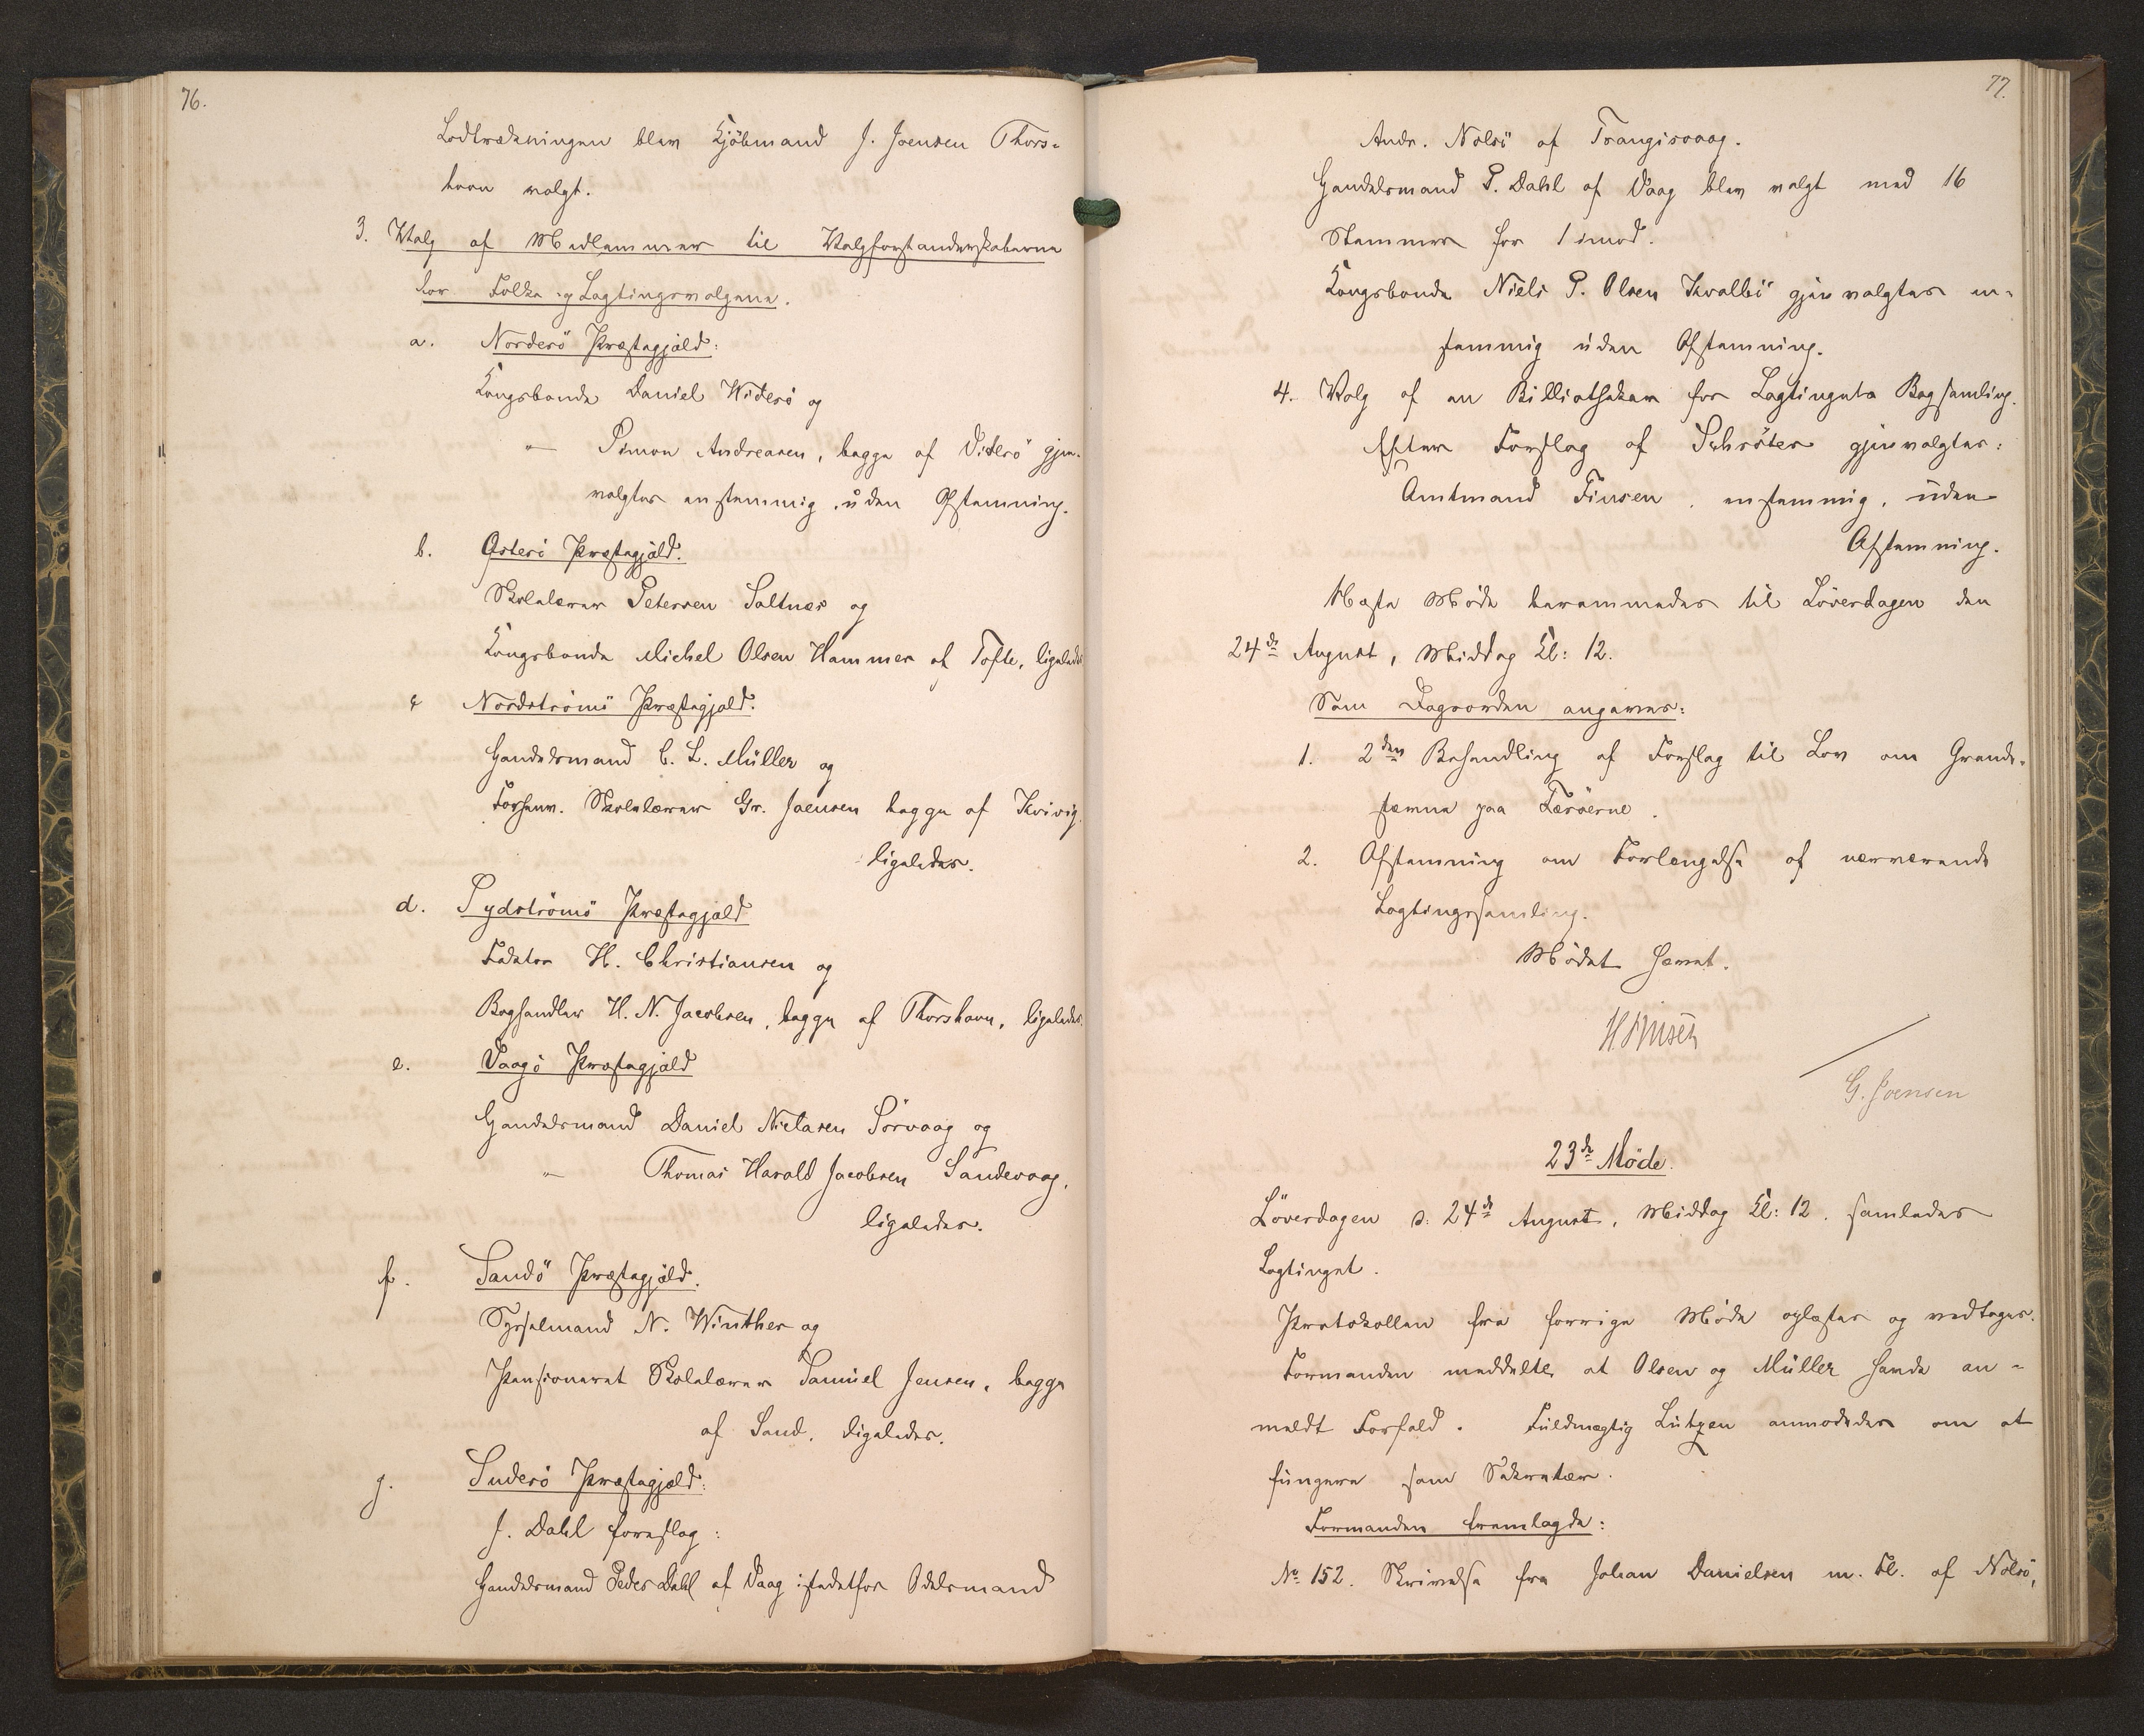 76.
Lodtrækningen blev Kjøbmand J. Joensen Thors-
havn valgt.
3. Valg af Medlemmer til Valgforstanderskaberne
for Folke og Lagtingsvalgene.
a. Norderö Præstegjæld:
Kongsbonde Daniel Widerö og
" Simon Andreasen, begge af Viderö gjen-
valgtes enstemmig, uden Afstemning.
b. Østerö Præstegjæld.
Skolelærer Petersen Saltnes og
Kongsbonde Michel Olsen Hammer af Tofte, ligeledes
c Nordströmö Præstegjæld.
Handelsmand C. L. Müller og
Forhenv. Skolelærer Gr. Joensen begge af Kvivig.
ligeledes.
d. Sydströmö Præstegjæld
Faktor H. Christiansen og
Boghandler H. N. Jacobsen, begge af Thorshavn, ligeledes.
e. Vaagö Præstegjæld
Handelsmand Daniel Nielasen Sörvaag og
" Thomas Harald Jacobsen Sandevaag,
ligeledes.
f. Sandö Præstegjæld.
Sysselmand N. Winther og
Pensioneret Skolelærer Samuel Jensen, begge
af Sand, ligeledes.
g. Suderö Præstegjæld:
J. Dahl foreslog:
Handelsmand Peder Dahl af Vaag istedetfor Odelsmand
77.
Andr. Nolsö af Trangisvaag.
Handelsmand P. Dahl af Vaag blev valgt med 16
Stemmer for 1 imod.
Kongsbonde Niels P. Olsen Kvalbö gjenvalgtes en-
stemmig uden Afstemning.
4. Valg af en Bibliothekar for Lagtingets Bogsamling.
Efter Forslag af Schröter gjenvalgtes:
Amtmand Finsen, enstemmig, uden
Afstemning.
Næste Möde berammedes til Löverdagen den
24de August, Middag Kl: 12.
Som Dagsorden angaves:
1. 2den Behandling af Forslag til Lov om Grande-
stevne paa Færöerne.
2. Afstemning om Forlængelse af nærværende
Lagtingssamling.
Mödet hævet.
H Finsen
G. Joensen
23de Möde.
Löverdagen d. 24de August, Middag Kl: 12. samledes
Lagtinget.
Protokollen fra forrige Möde oplæstes og vedtoges.
Formanden meddelte, at Olsen og Müller havde an-
meldt Forfald. Fuldmægtig Lützen anmodedes om at
fungere som Sekretær.
Formanden fremlagde:
No 152. Skrivelse fra Johan Danielsen m. Fl. af Nolsö,